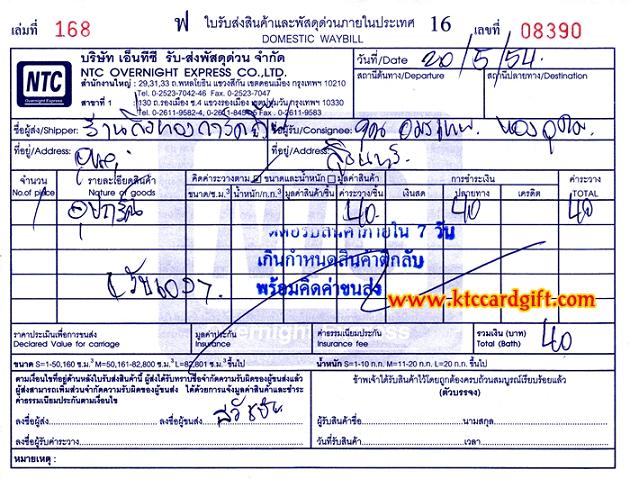 เล่มที่ 168 ฟ ใบรับส่งสินค้าและพัสดุด่วนภายในประเทศ 16 เลขที่ 08390
DOMESTIC WAYBILL
NTC
Overnight Express
บริษัท เอ็นทีซี รับ-ส่งพัสดุด่วน จำกัด
NTC OVERNIGHT EXPRESS CO.,LTD.
วันที่/Date 20/5/54
สำนักงานใหญ่ : 29,31,33 ถ.พหลโยธิน แขวงสีกัน เขตดอนเมือง กรุงเทพฯ 10210
Tel. 0-2523-7042-46 Fax. 0-2523-7047
สถานีต้นทาง/Departure สถานีปลายทาง/Destination
สาขาที่ 1 : 130 ถ.รองเมือง ซ.4 แขวงรองเมือง เขตปทุมวัน กรุงเทพฯ 10330
Tel. 0-2611-9582-4, Fax. 0-2611-9583
ชื่อผู้ส่ง/Shipper: ชื่อผู้รับ/Consignee: คุณ
ที่อยู่/Address: ที่อยู่/Address:
จำนวน รายละเอียดสินค้า คิดค่าระวางตาม ขนาดและน้ำหนัก มูลค่าสินค้า การชำระเงิน ค่าระวาง
No.of piece Nature of goods ขนาด/ซ.ม.³ น้ำหนัก/ก.ก. มูลค่าสินค้า/ชิ้น ค่าระวาง/ชิ้น เงินสด ปลายทาง เครดิต TOTAL
1 40 40 40
ติดต่อรับสินค้าภายใน 7 วัน
เกินกำหนดสินค้าตีกลับ
พร้อมคิดค่าขนส่ง
www.ktccardgift.com
NTC
Overnight Express
ราคาประเมินเพื่อการขนส่ง มูลค่าประกัน ค่าธรรมเนียมประกัน รวมเงิน (บาท) 40
Declared Value for carriage Insurance Insurance fee Total (Bath)
ขนาด S=1-50,160 ซ.ม.³ M=50,161-82,800 ซ.ม.³ L=82,801 ซ.ม.³ ขึ้นไป น้ำหนัก S=1-10 ก.ก. M=11-20 ก.ก. L=20 ก.ก. ขึ้นไป
ตามเงื่อนไขที่อยู่ด้านหลังใบรับส่งสินค้านี้ ผู้ส่งได้รับทราบข้อจำกัดความรับผิดของผู้ขนส่งแล้ว
ผู้ส่งสามารถเพิ่มส่วนจำกัดความรับผิดของผู้ขนส่ง ได้ด้วยการแจ้งมูลค่าสินค้าและชำระ
ค่าธรรมเนียมประกันตามเงื่อนไข
ข้าพเจ้าได้รับสินค้าไว้โดยถูกต้องครบถ้วนสมบูรณ์เรียบร้อยแล้ว
(ตัวบรรจง)
ลงชื่อผู้ส่ง ลงชื่อผู้ขนส่ง ผู้รับสินค้าชื่อ นามสกุล
ลงชื่อผู้รับค่าระวาง วันที่รับสินค้า เวลา
หมายเหตุ :